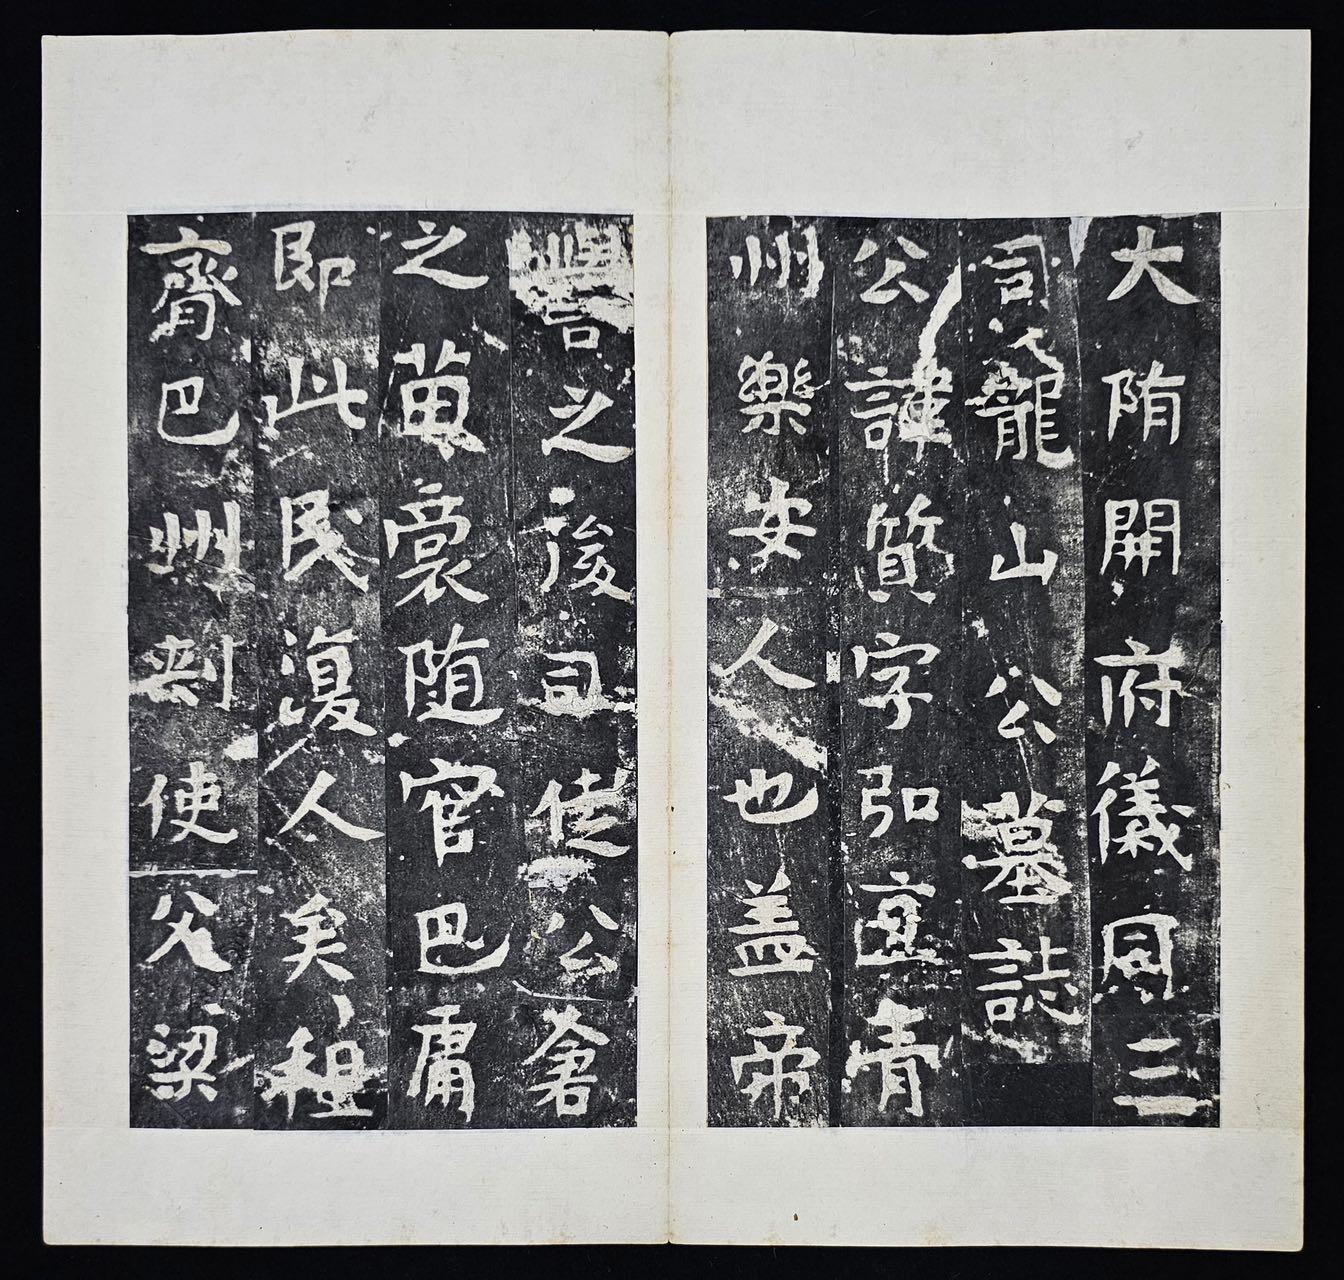 大隋開府儀同三
司龍山公墓誌
公諱質字弘直青
州樂安人也蓋帝
嚳之後司徒公蒼
之苗裔随官巴庸
即此民復人矣祖
齊巴州刺使父梁